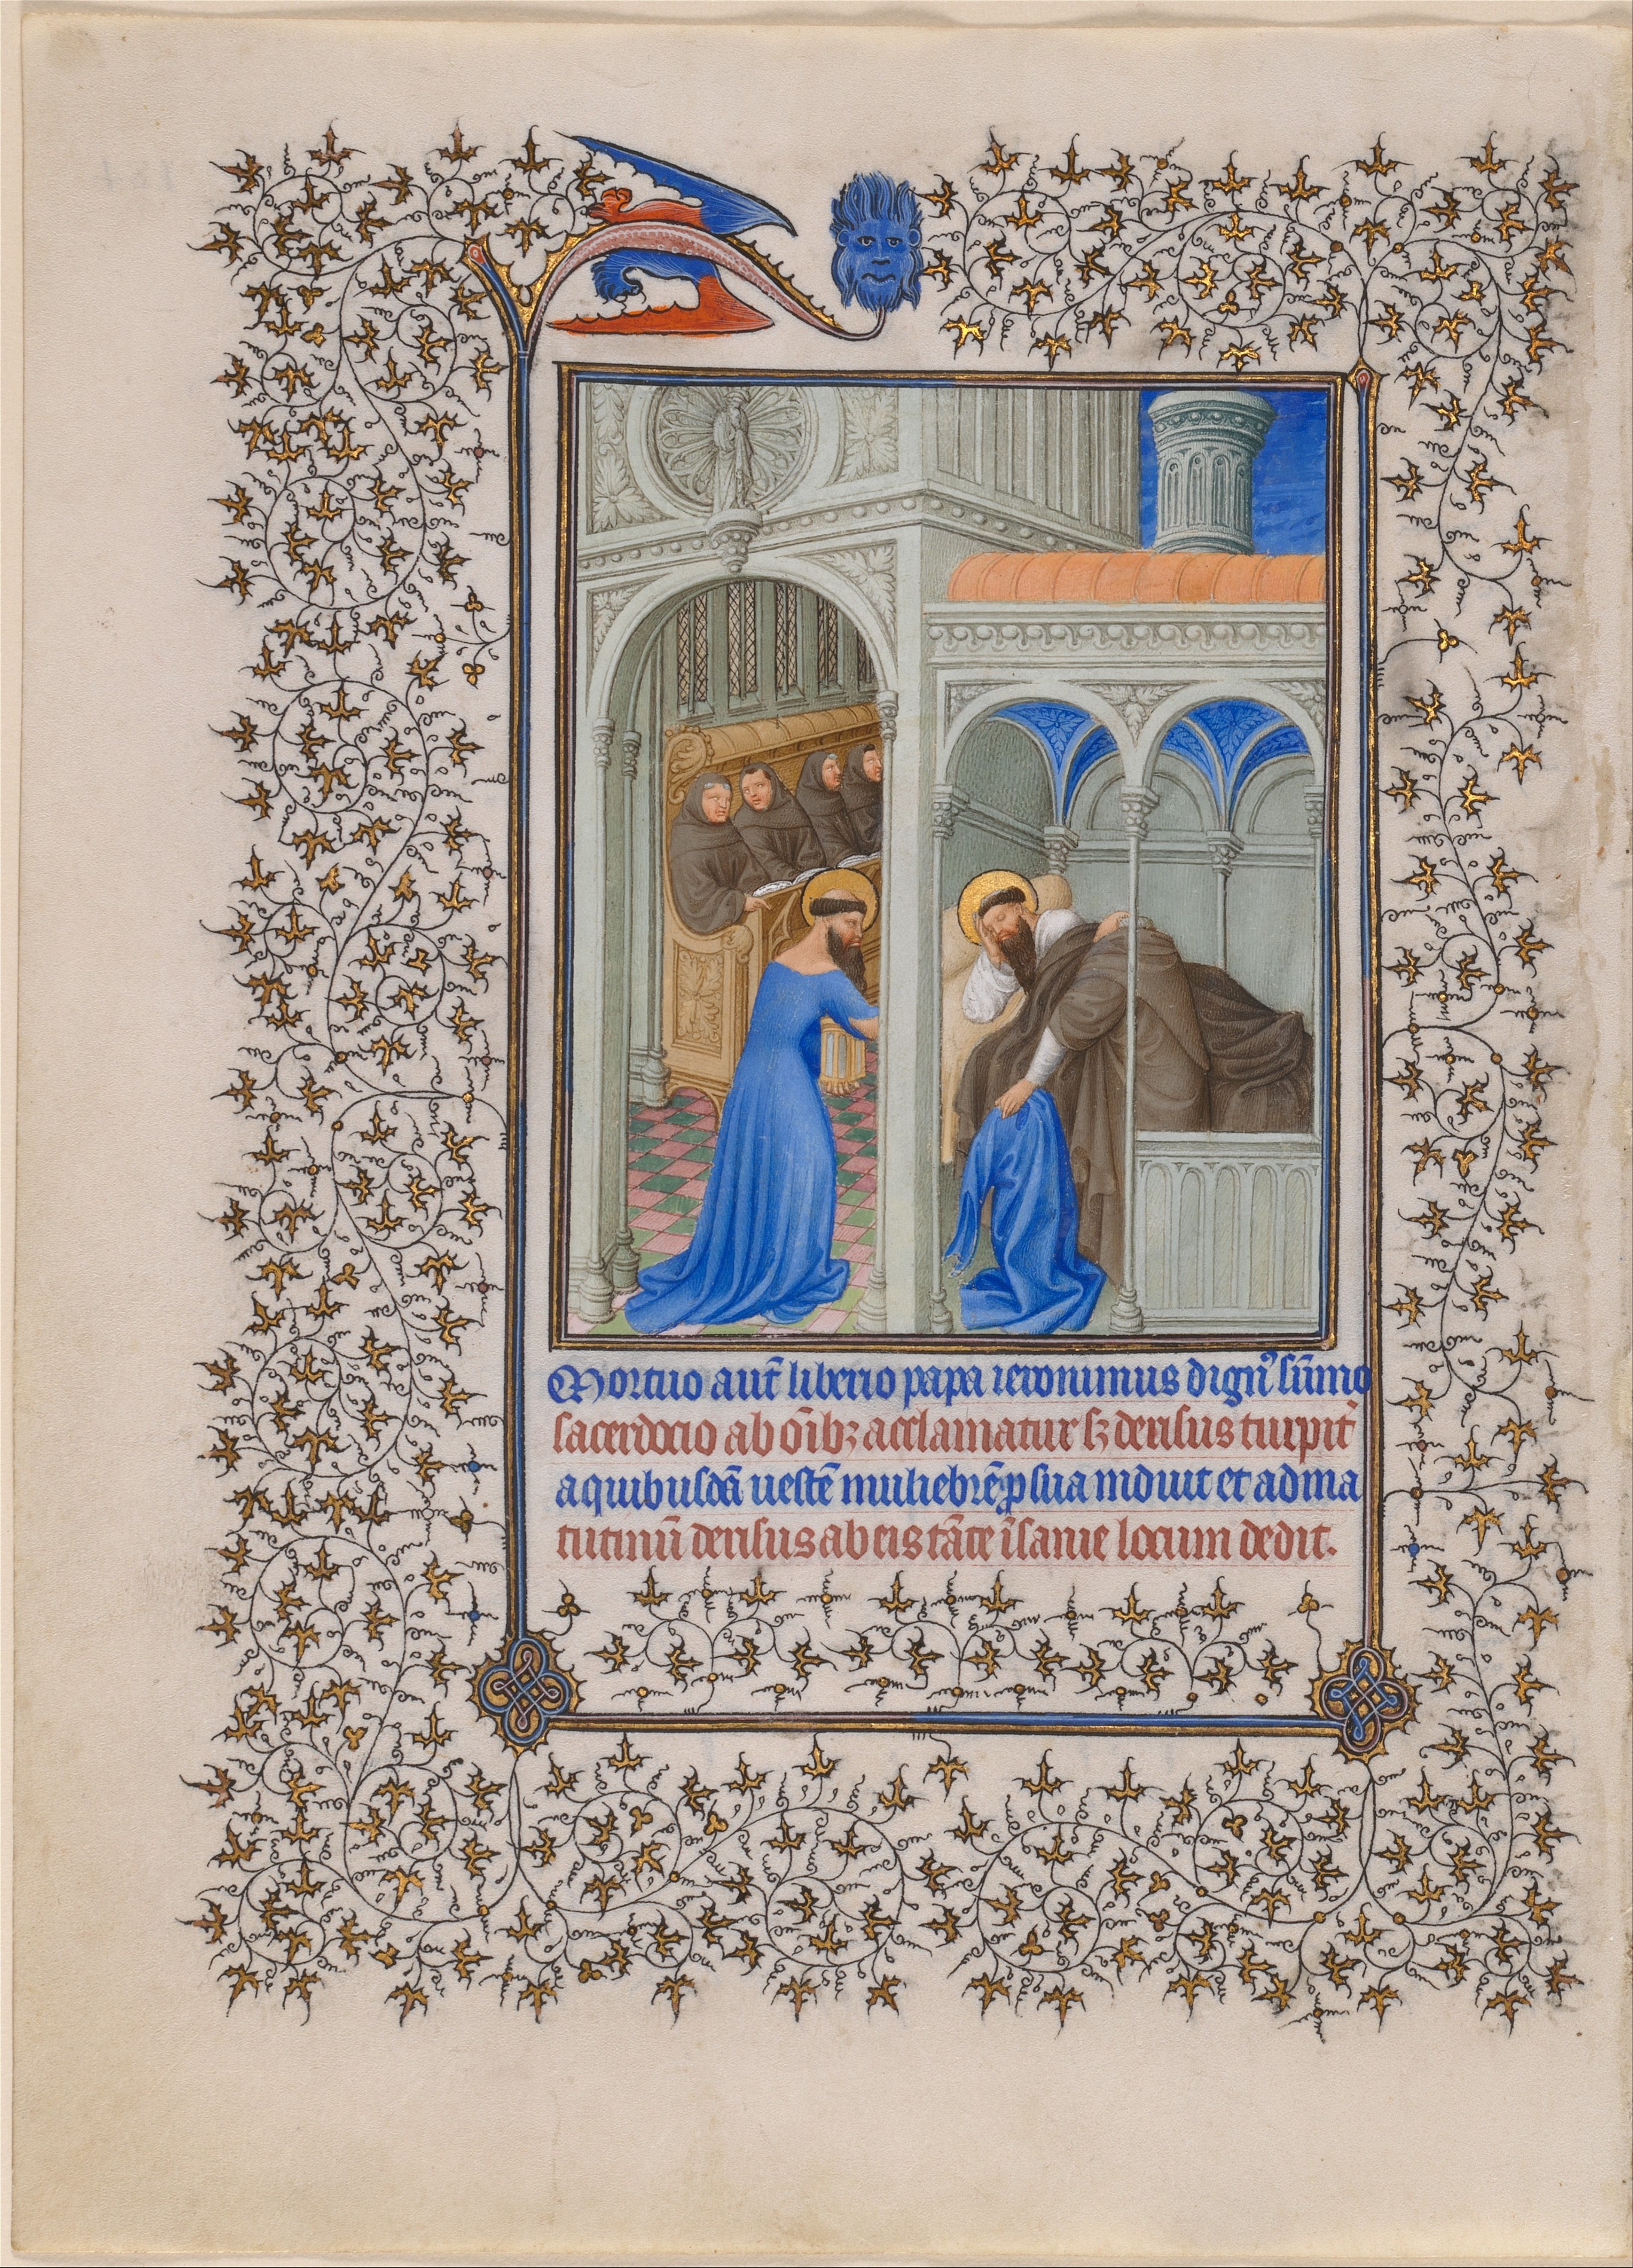 Mortuo aut̄ liberio papa ieronimus dignꝰ sūmo
sacerdocio ab oīb; acclamatur sꝫ derisus turpit̾
a quibusdā uestē muliebrē ꝓ sua induit et ad ma
tutinū derisus ab eis tāte īsanie locum dedit.